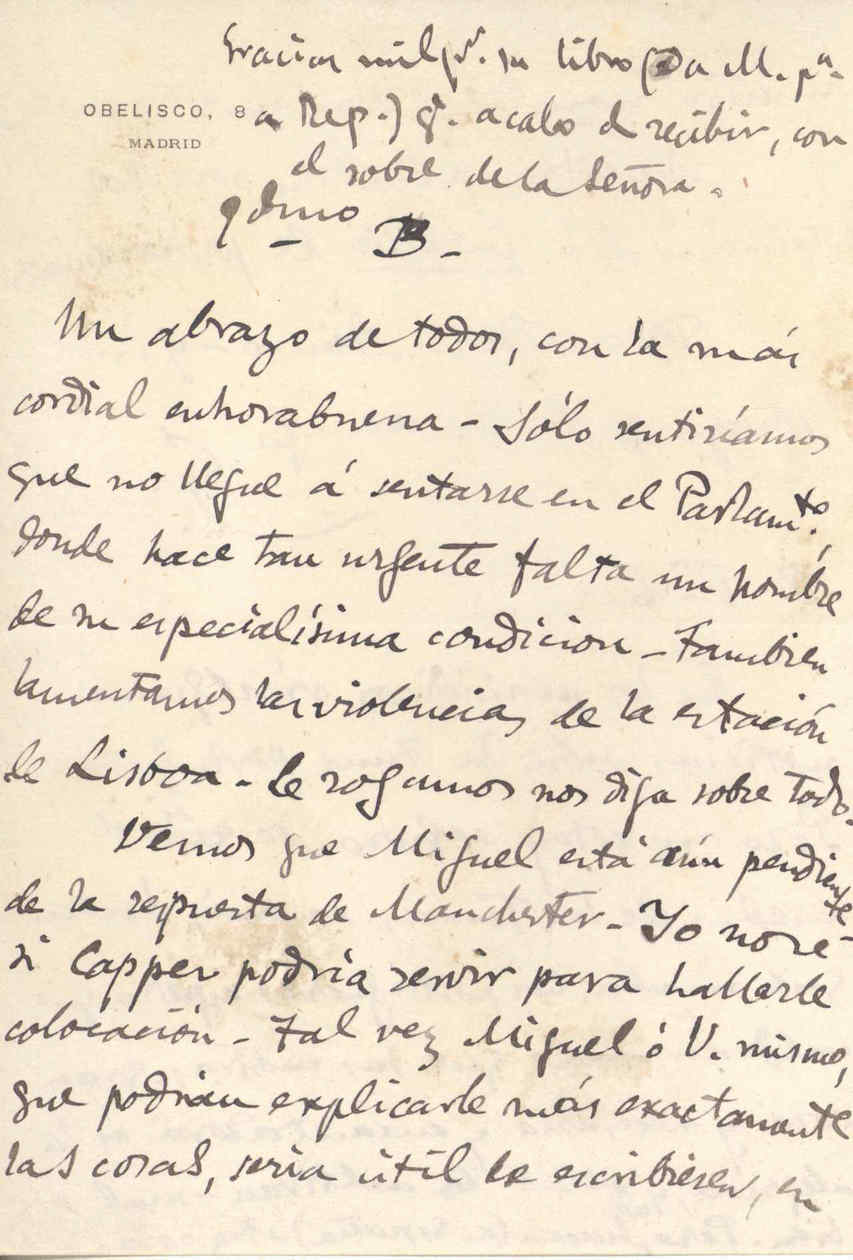 Gracias mil pr. su libro (Da M. pa.
OBELISCO, 8
MADRID
a Rep.) q. acabo d recibir, con
el sobre de la Señora.
B.
Un abrazo de todos, con la más
cordial enhorabuena - Sólo sentiríamos
que no llegue á sentarse en el Parlamto.,
donde hace tan urgente falta un hombre
de su especialísima condicion - Tambien
lamentamos las violencias de la estación
de Lisboa - Le rogamos nos diga sobre todo.
Vemos que Miguel está aún pendiente
de la respuesta de Manchester - Yo no sé
si Capper podría servir para hallarle
colocación - Tal vez Miguel ó V. mismo,
que podrian explicarle más exactamente
las cosas, seria útil le escribiesen, en